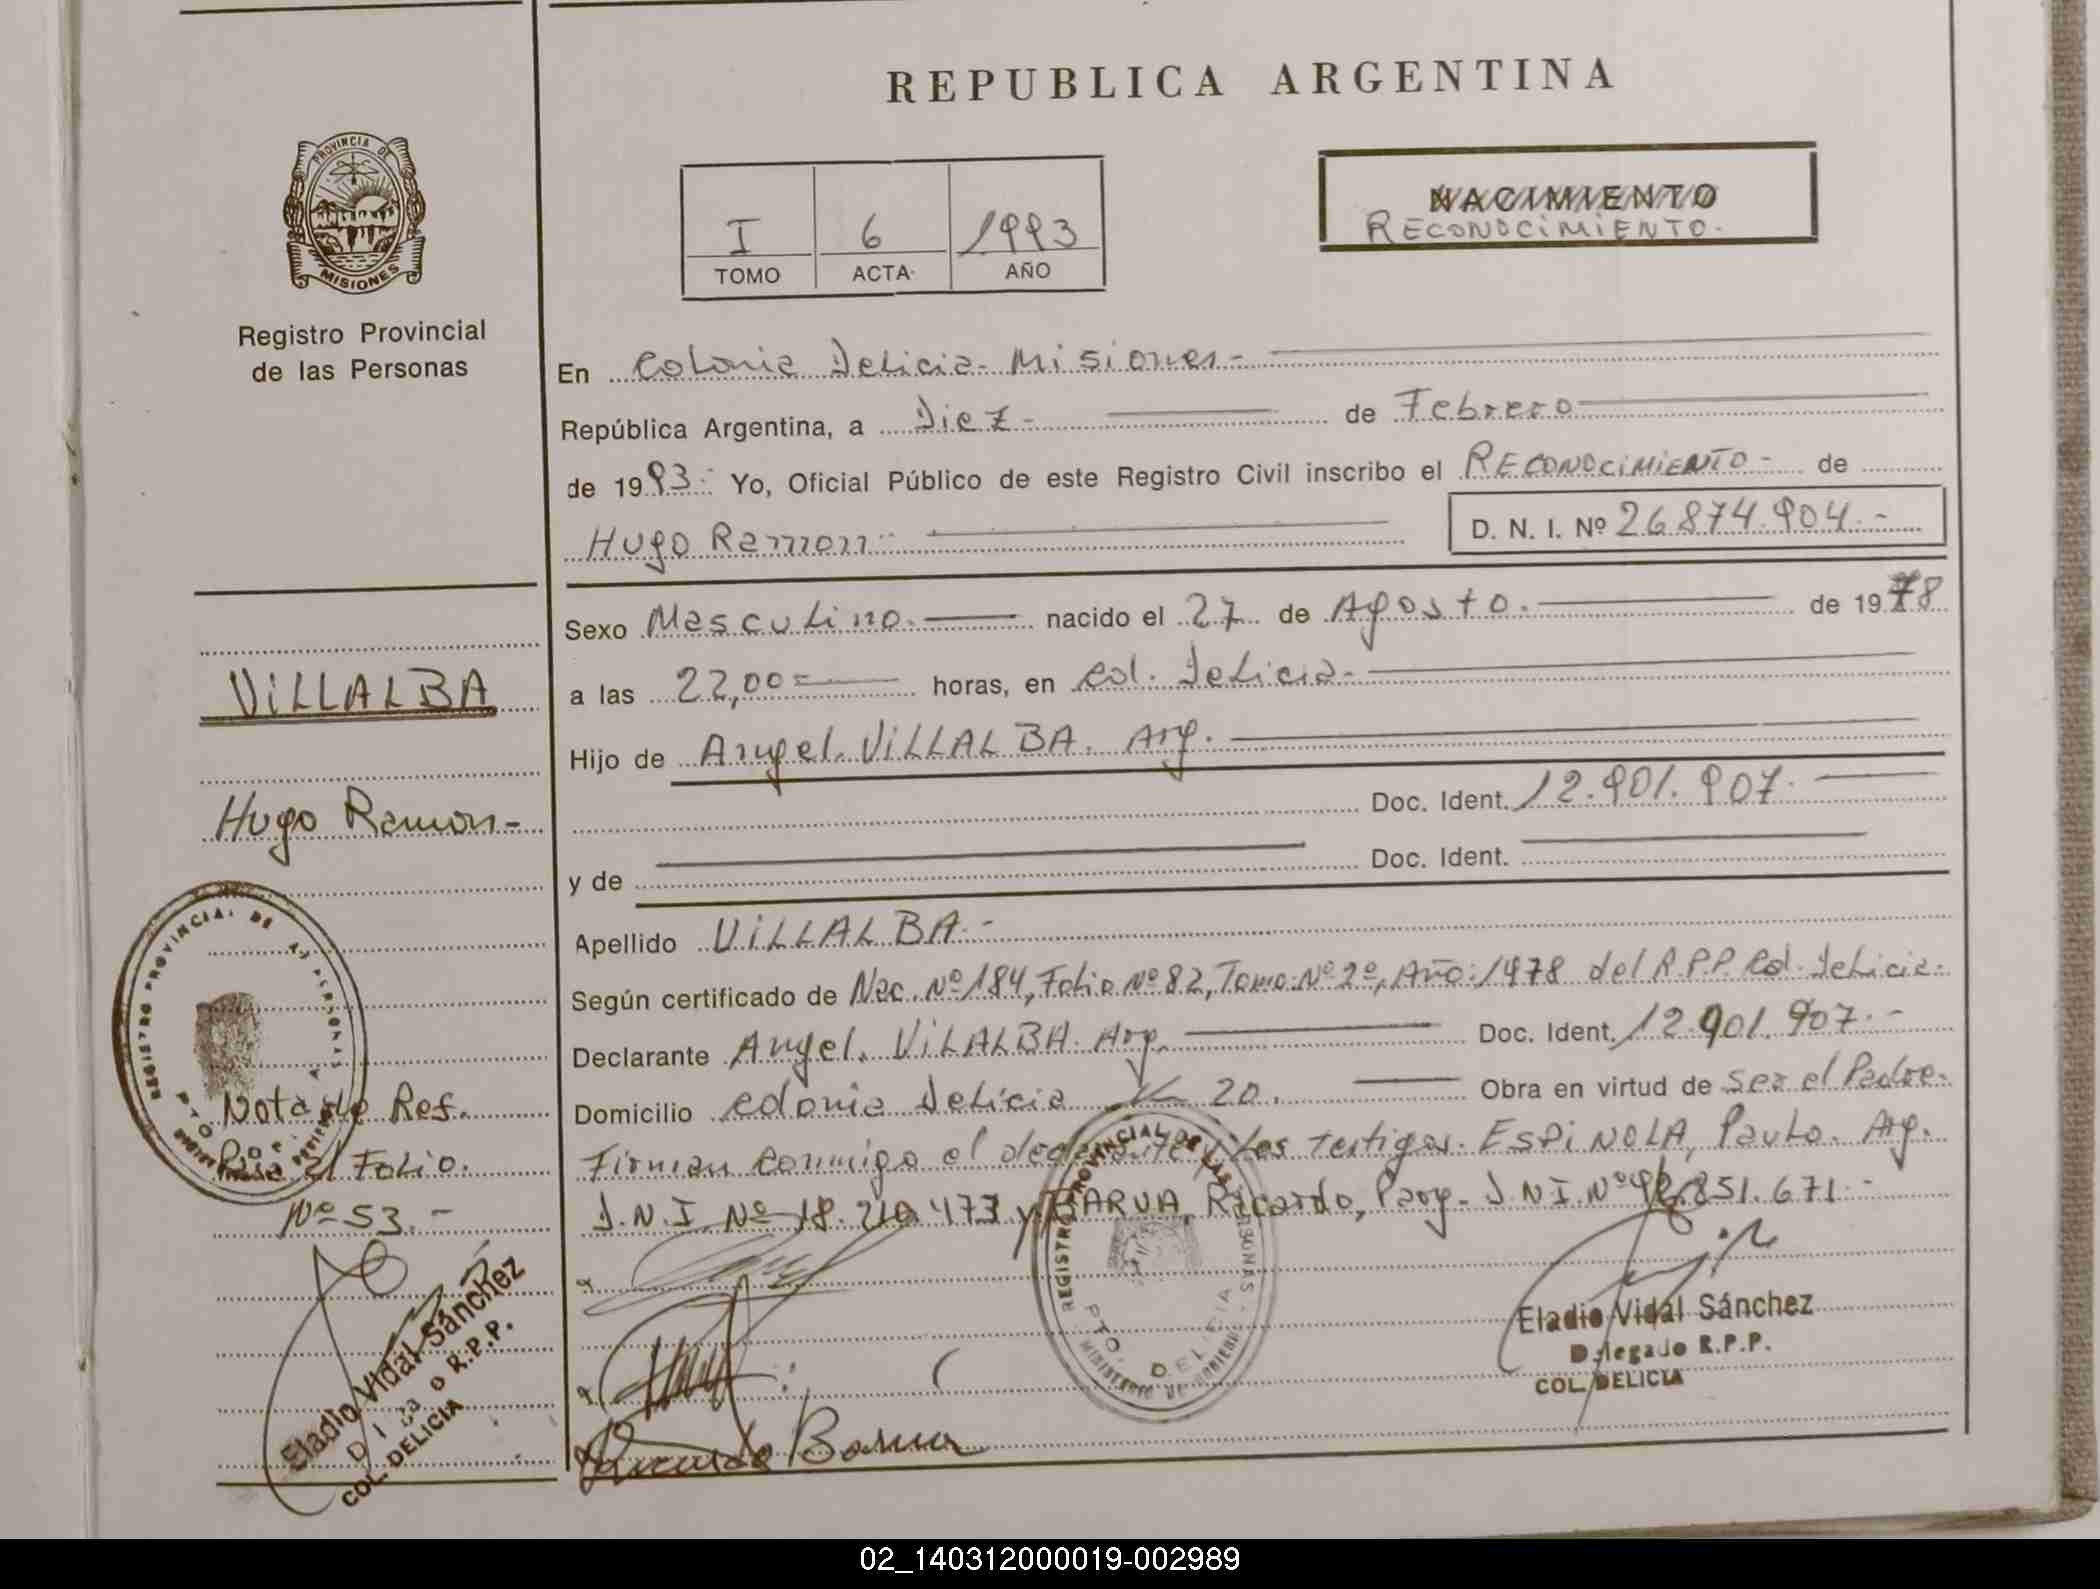 REPUBLICA ARGENTINA
PROVINCIA DE MISIONES
Registro Provincial
de las Personas
I 6 1993
TOMO ACTA AÑO
NACIMIENTO
RECONOCIMIENTO.
En Colonia Delicia - Misiones -
República Argentina, a Diez - de Febrero
de 1993 - Yo, Oficial Público de este Registro Civil inscribo el RECONOCIMIENTO - de
Hugo Ramon - D. N. I. Nº 26.874.904.-
Sexo Masculino. nacido el 27 de Agosto. de 1978
a las 22,00 = horas, en Col. Delicia -
Hijo de Angel. VILLALBA. Arg.
Doc. Ident. 12.901.907.
y de Doc. Ident.
Apellido VILLALBA.-
Según certificado de Nac. Nº 184, Folio Nº 82, Tomo: Nº 2º, Año: 1978 del R.P.P. Col. Delicia.
Declarante Angel. VILALBA. Arg. Doc. Ident. 12.901.907.-
Domicilio Colonia Delicia K 20. Obra en virtud de ser el Padre.
Firman conmigo el declarante y los testigos. ESPINOLA, Paulo. Arg.
D.N.I. Nº 18.210.473 y BARUA, Ricardo, Parg - D.N.I. Nº 92.851.671.-
Ricardo Barua
VILLALBA
Hugo Ramon -
Nota de Ref.
Pasa al Folio.
Nº 53.-
REGISTRO PROVINCIAL DE LAS PERSONAS
PTO. DELICIA
MINISTERIO DE GOBIERNO
Eladio Vidal Sánchez
COL. DELICIA
REGISTRO PROVINCIAL DE LAS PERSONAS
PTO. DELICIA
MINISTERIO DE GOBIERNO
Eladio Vidal Sánchez
Delegado R.P.P.
COL. DELICIA
02_140312000019-002989